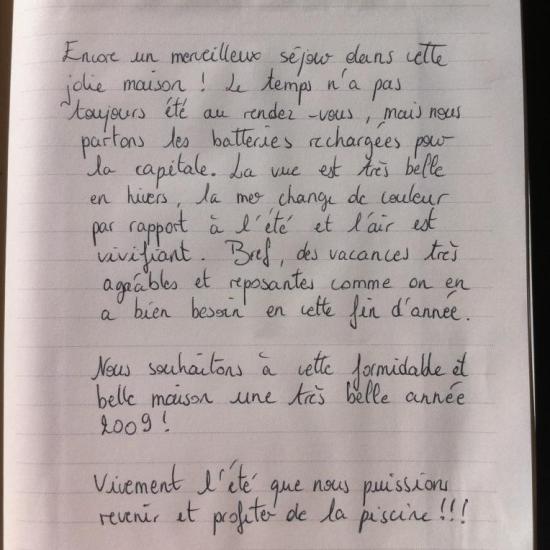 Encore un merveilleux séjour dans cette
jolie maison ! Le temps n'a pas
toujours été au rendez-vous, mais nous
partons les batteries rechargées pour
la capitale. La vue est très belle
en hivers, la mer change de couleur
par rapport à l'été et l'air est
vivifiant. Bref, des vacances très
agréables et reposantes comme on en
a bien besoin en cette fin d'année.
Nous souhaitons à cette formidable et
belle maison une très belle année
2009 !
Vivement l'été que nous puissions
revenir et profiter de la piscine !!!